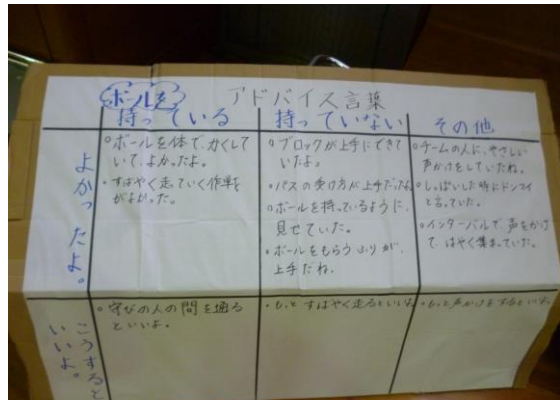 アドバイス言葉
ボールを
持っている
持っていない
その他
よかったよ。
・ボールを体で、かくして
いて、よかったよ。
・すばやく走っていく作戦
がよかった。
・ブロックが上手にできて
いたよ。
・パスの受け方が上手だったよ
・ボールを持っているように、
見せていた。
・ボールをもらうふりが、
上手だね。
・チームの人に、やさしい
声かけをしていたね。
・しっぱいした時にドンマイ
と言っていた。
・インターバルで、声をかけ
て、はやく集まっていた。
こうすると
いいよ。
・守びの人の間を通る
といいよ。
・もっとすばやく走るといいよ
・もっと声かけをするといいよ